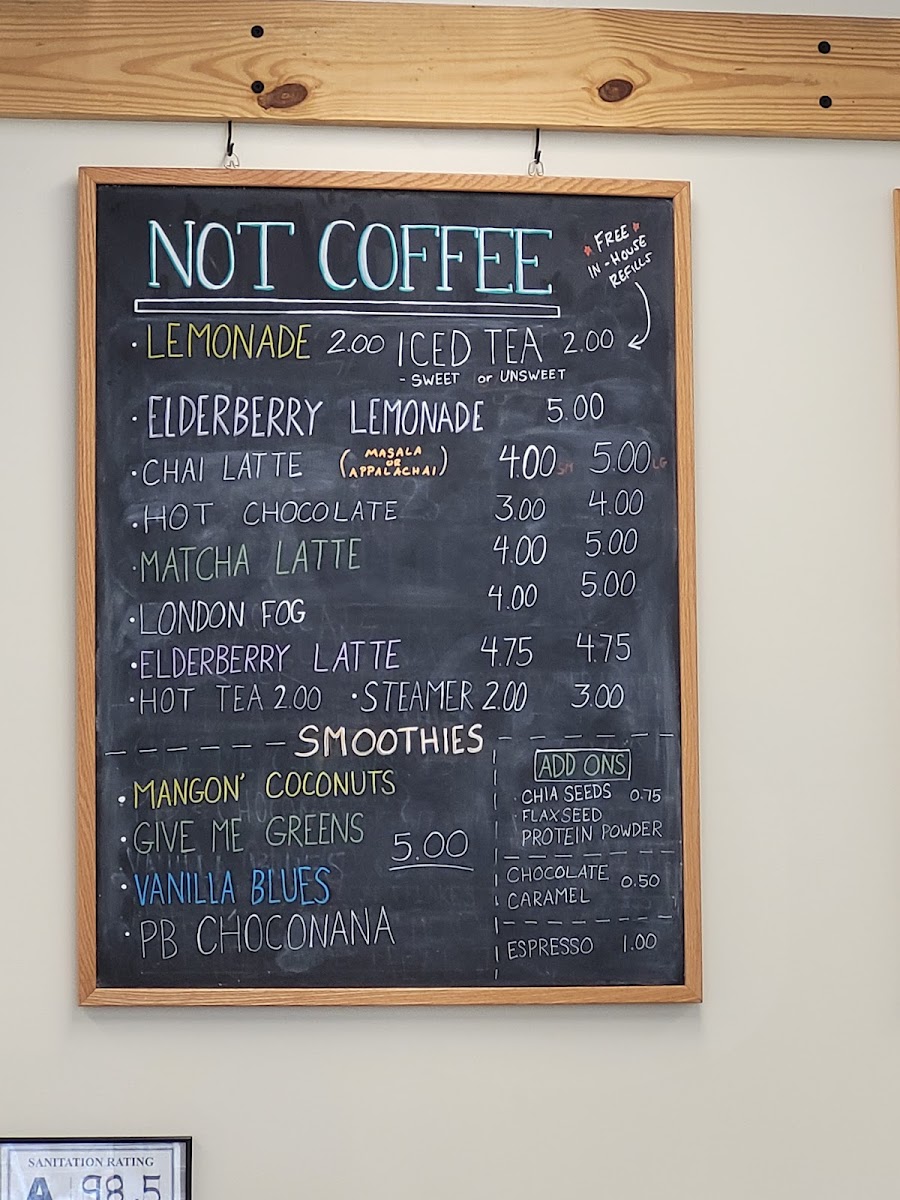 NOT COFFEE
* FREE *
IN-HOUSE
REFILLS
· LEMONADE 2.00 ICED TEA 2.00
- SWEET or UNSWEET
· ELDERBERRY LEMONADE 5.00
· CHAI LATTE (MASALA OR APPALACHAI) 4.00 SM 5.00 LG
· HOT CHOCOLATE 3.00 4.00
· MATCHA LATTE 4.00 5.00
· LONDON FOG 4.00 5.00
· ELDERBERRY LATTE 4.75 4.75
· HOT TEA 2.00 · STEAMER 2.00 3.00
SMOOTHIES
· MANGON' COCONUTS
· GIVE ME GREENS
5.00
· VANILLA BLUES
· PB CHOCONANA
ADD ONS
· CHIA SEEDS 0.75
· FLAXSEED
PROTEIN POWDER
CHOCOLATE
CARAMEL 0.50
ESPRESSO 1.00
SANITATION RATING
A 98.5